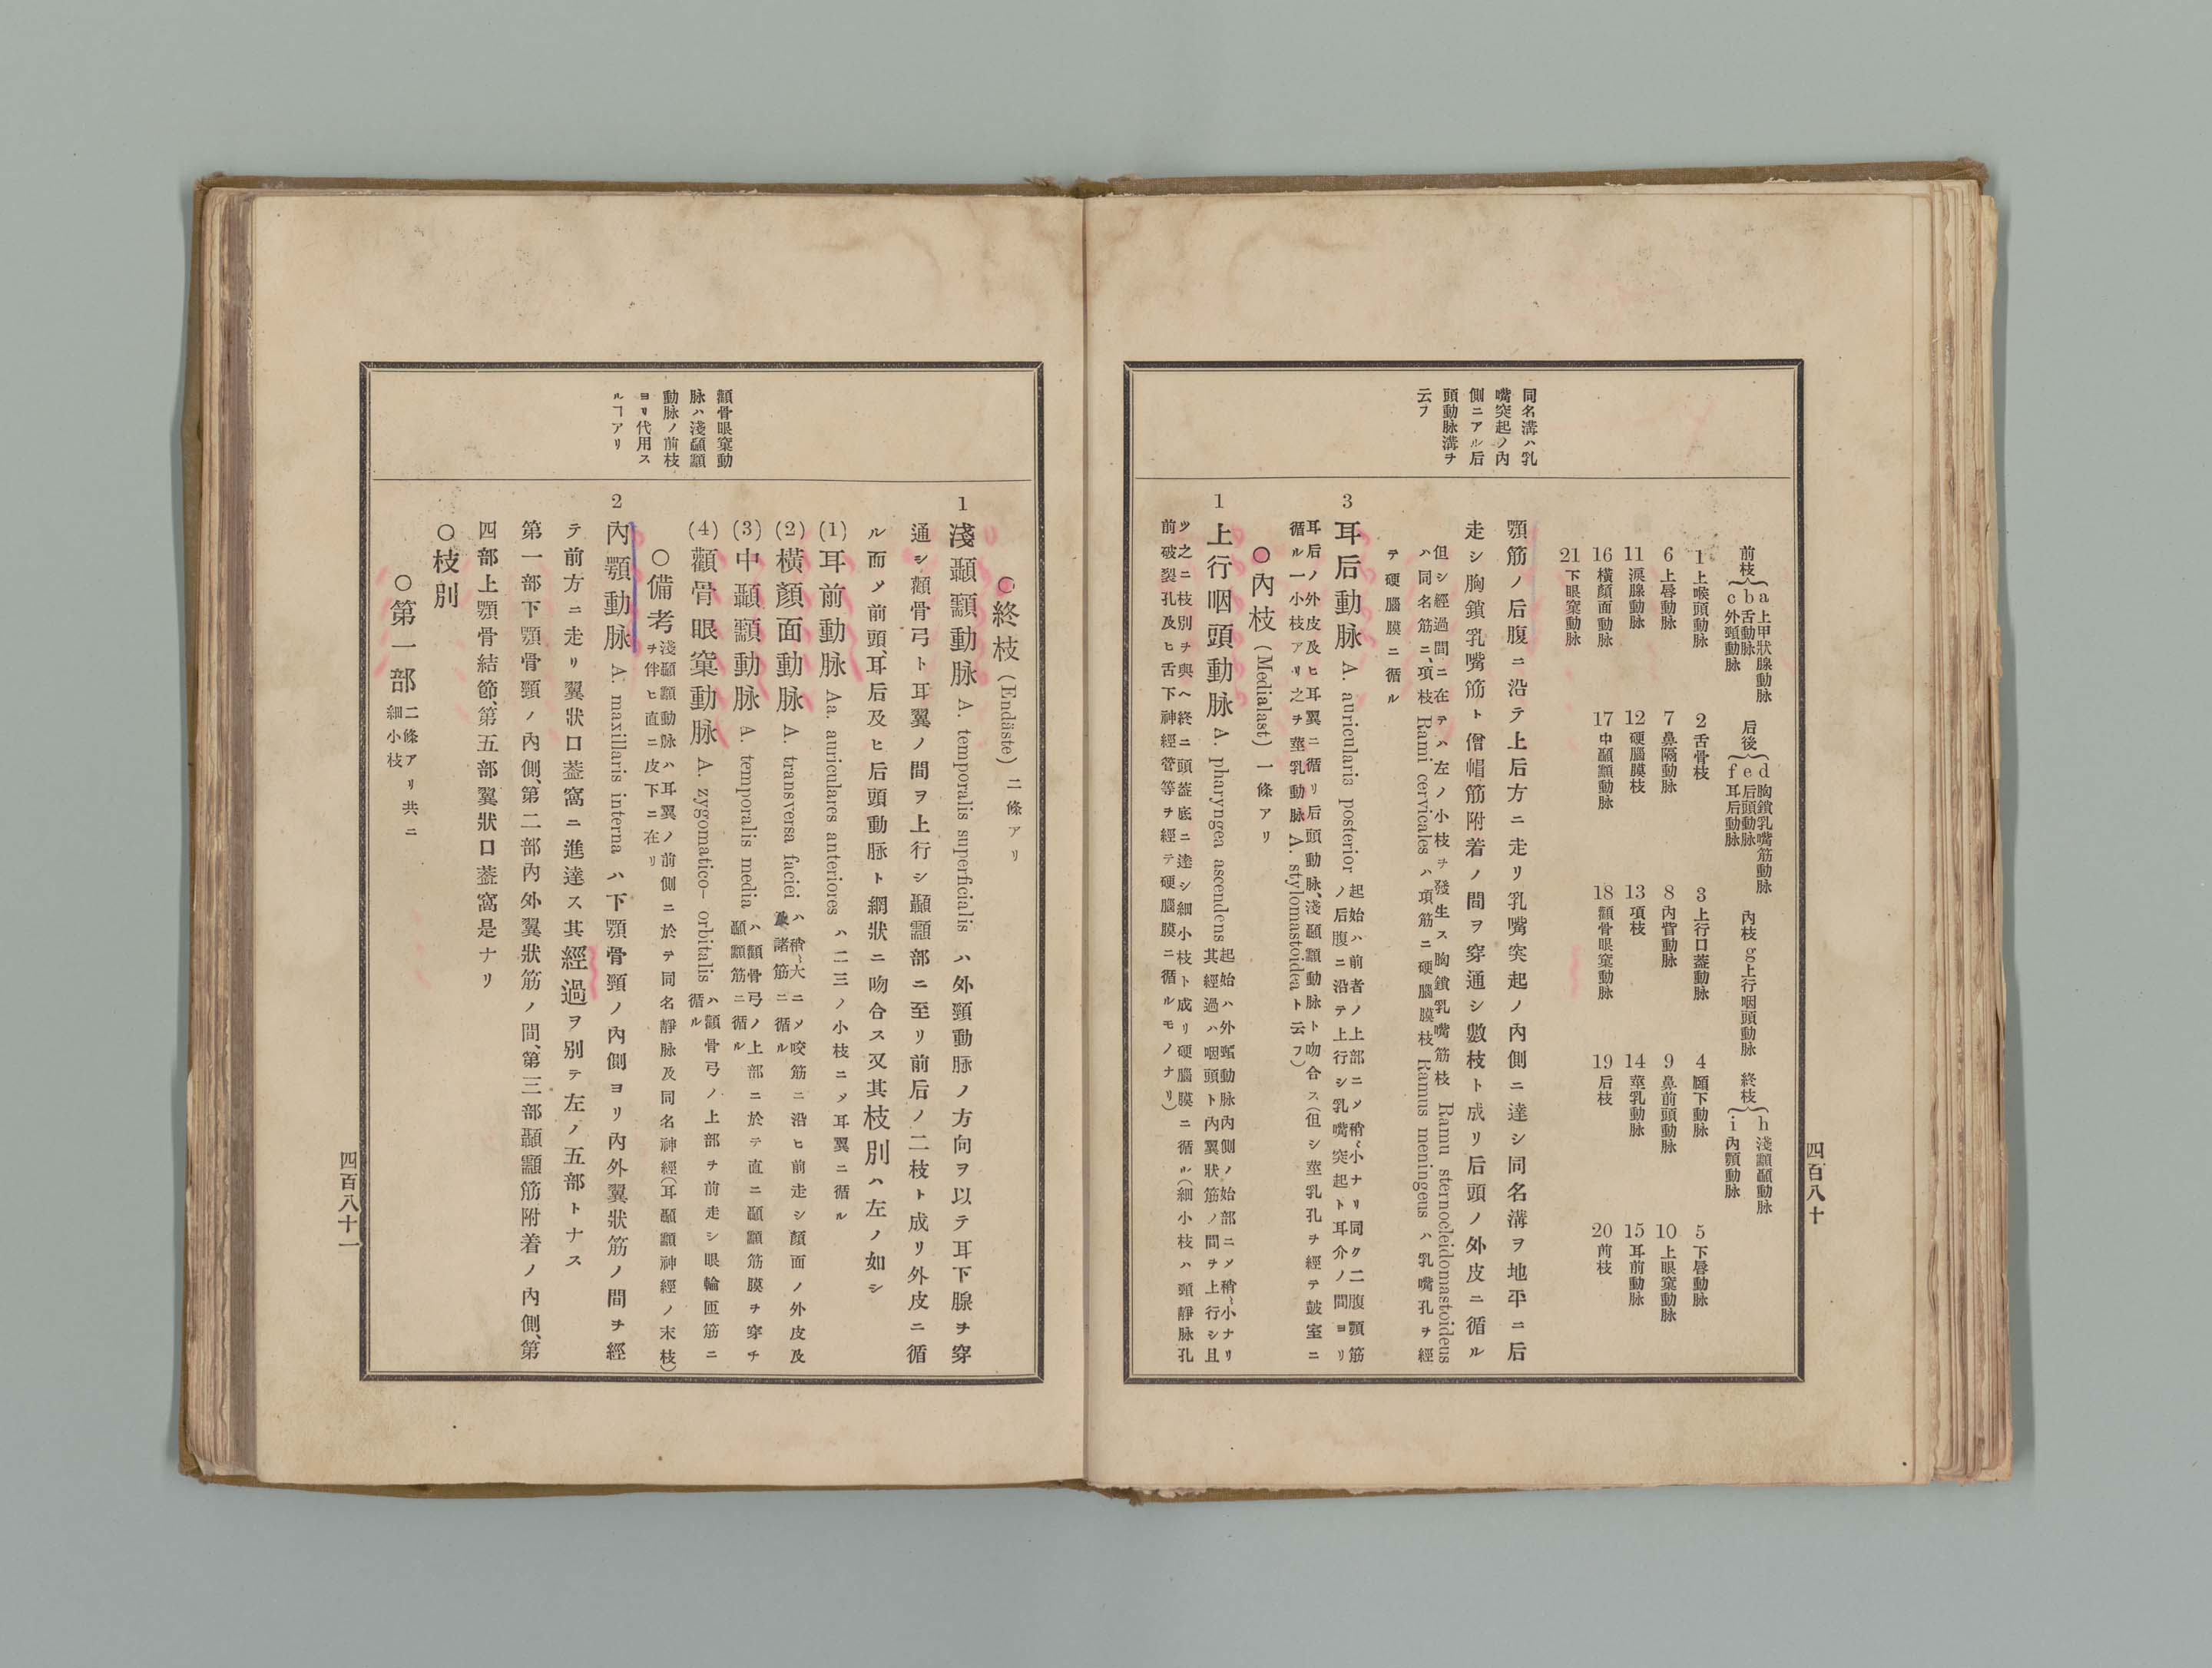 四百八十
同名溝ハ乳
嘴突起ノ內
側ニアル后
頭動脉溝チ
云フ
前枝{a上甲狀腺動脉 b舌動脉 c外頸動脉 后後{d胸鎖乳嘴筋動脉 e后頭動脉 f耳后動脉 內枝 g上行咽頭動脉 終枝{h淺顳顬動脉 i內顎動脉
1上喉頭動脉 2舌骨枝 3上行口葢動脉 4頤下動脉 5下唇動脉
6上唇動脉 7鼻隔動脉 8內眥動脉 9鼻前頭動脉 10上眼窠動脉
11淚腺動脉 12硬腦膜枝 13項枝 14莖乳動脉 15耳前動脉
16橫顏面動脉 17中顳顬動脉 18顴骨眼窠動脉 19后枝 20前枝
21下眼窠動脉
顎筋ノ后腹ニ沿テ上后方ニ走リ乳嘴突起ノ內側ニ達シ同名溝ヲ地平ニ后
走シ胸鎖乳嘴筋ト僧帽筋附着ノ間ヲ穿通シ數枝ト成リ后頭ノ外皮ニ循ル
但シ經過間ニ在テハ左ノ小枝チ發生ス胸鎖乳嘴筋枝 Ramu sternocleidomastoideus
ハ同名筋ニ、項枝 Rami cervicales ハ項筋ニ硬腦膜枝 Ramus meningeus ハ乳嘴孔チ經
テ硬腦膜ニ循ル
3 耳后動脉 A. auricularis posterior 起始ハ前者ノ上部ニメ稍〻小ナリ同ク二腹顎筋
ノ后腹ニ沿テ上行シ乳嘴突起ト耳介ノ間ヨリ
耳后ノ外皮及ヒ耳翼ニ循リ后頭動脉、淺顳顬動脉ト吻合ス(但シ莖乳孔チ經テ鼓室ニ
循ル一小枝アリ之チ莖乳動脉 A. stylomastoidea ト云フ)
○內枝 (Medialast) 一條アリ
1 上行咽頭動脉 A. pharyngea ascendens 起始ハ外頸動脉內側ノ始部ニメ稍〻小ナリ
其經過ハ咽頭ト內翼狀筋ノ間チ上行シ且
ツ之ニ枝別チ與ヘ終ニ頭葢底ニ達シ細小枝ト成リ硬腦膜ニ循ル(細小枝ハ頸靜脉孔
前破裂孔及ヒ舌下神經管等チ經テ硬腦膜ニ循ルモノナリ)
顴骨眼窠動
脉ハ淺顳顬
動脉ノ前枝
ヨリ代用ス
ルヿアリ
○終枝 (Endäste) 二條アリ
1 淺顳顬動脉 A. temporalis superficialis ハ外頸動脉ノ方向ヲ以テ耳下腺ヲ穿
通シ顴骨弓ト耳翼ノ間ヲ上行シ顳顬部ニ至リ前后ノ二枝ト成リ外皮ニ循
ル而メ前頭、耳后及ヒ后頭動脉ト網狀ニ吻合ス又其枝別ハ左ノ如シ
(1) 耳前動脉 Aa. auriculares anteriores ハ二三ノ小枝ニメ耳翼ニ循ル
(2) 橫顏面動脉 A. transversa faciei ハ稍〻大ニメ咬筋ニ沿ヒ前走シ顏面ノ外皮及
諸筋ニ循ル
(3) 中顳顬動脉 A. temporalis media ハ顴骨弓ノ上部ニ於テ直ニ顳顬筋膜チ穿チ
顳顬筋ニ循ル
(4) 顴骨眼窠動脉 A. zygomatico- orbitalis ハ顴骨弓ノ上部チ前走シ眼輪匝筋ニ
循ル
○備考 淺顳顬動脉ハ耳翼ノ前側ニ於テ同名靜脉及同名神經(耳顳顬神經ノ末枝)
チ伴ヒ直ニ皮下ニ在リ
2 內顎動脉 A. maxillaris interna ハ下顎骨頸ノ內側ヨリ內外翼狀筋ノ間チ經
テ前方ニ走リ翼狀口葢窩ニ進達ス其經過ヲ別テ左ノ五部トナス
第一部下顎骨頸ノ內側、第二部內外翼狀筋ノ間、第三部顳顬筋附着ノ內側、第
四部上顎骨結節、第五部翼狀口葢窩是ナリ
○枝別
○第一部 二條アリ共ニ
細小枝
四百八十一